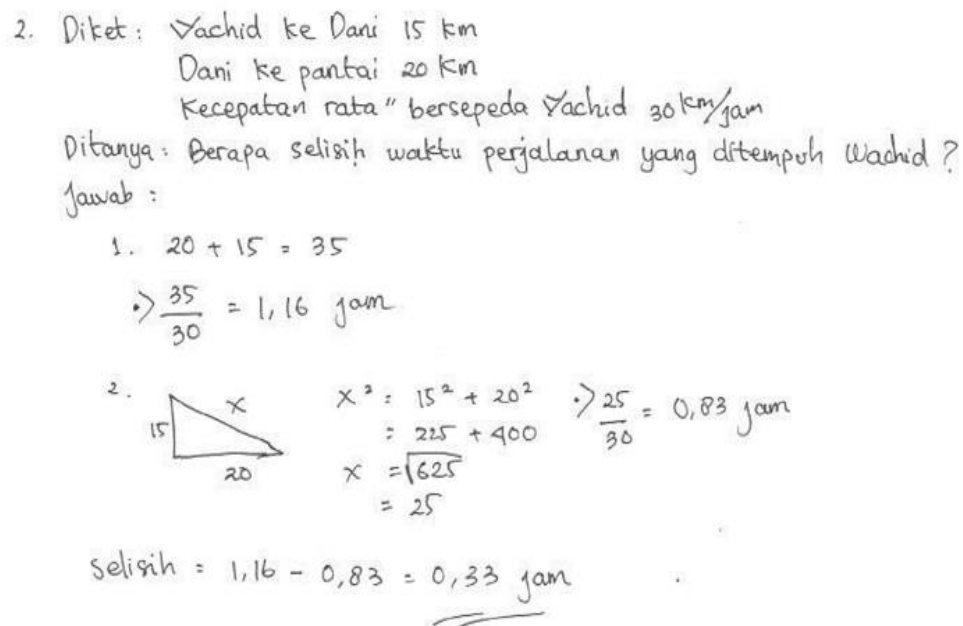 2. Diket : Wachid ke Dani 15 km
Dani ke pantai 20 Km
Kecepatan rata" bersepeda Wachid 30 km/jam
Ditanya : Berapa selisih waktu perjalanan yang ditempuh Wachid ?
Jawab :
1. 20 + 15 = 35
•> 35/30 = 1,16 jam
2. 15 x 20
x² = 15² + 20²
= 225 + 400
x = √625
= 25
•> 25/30 = 0,83 jam
Selisih = 1,16 - 0,83 = 0,33 jam